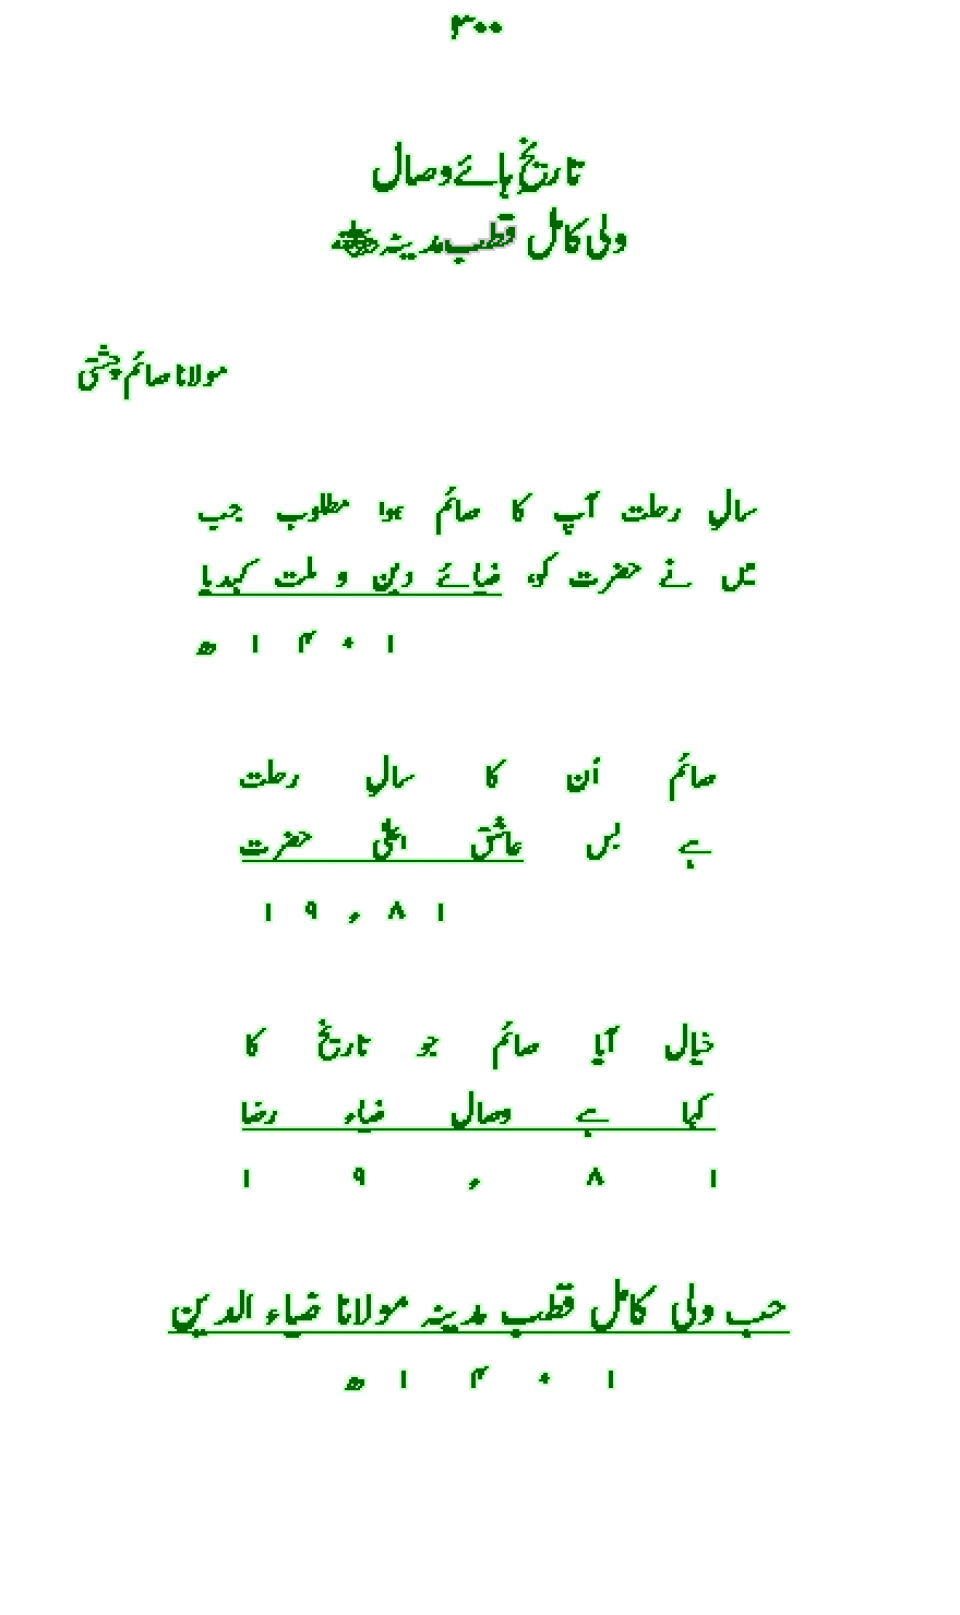 ۳۰۰
تاریخ ہائے وصال
ولی کامل قطب مدینہ ؓ
مولانا صائم چشتی
سالِ رحلت آپ کا صائم ہوا مطلوب جب
میں نے حضرت کو، ضیائے دین و ملت کہدیا
۱ ۰ ۴ ۱ ھ
صائم اُن کا سالِ رحلت
ہے بس عاشق اعلٰی حضرت
۱ ۹ ء ۸ ۱
خیال آیا صائم جو تاریخ کا
کہا ہے وصال ضیاء رضا
۱ ۹ ء ۸ ۱
حب ولی کامل قطب مدینہ مولانا ضیاء الدین
۱ ۰ ۴ ۱ ھ